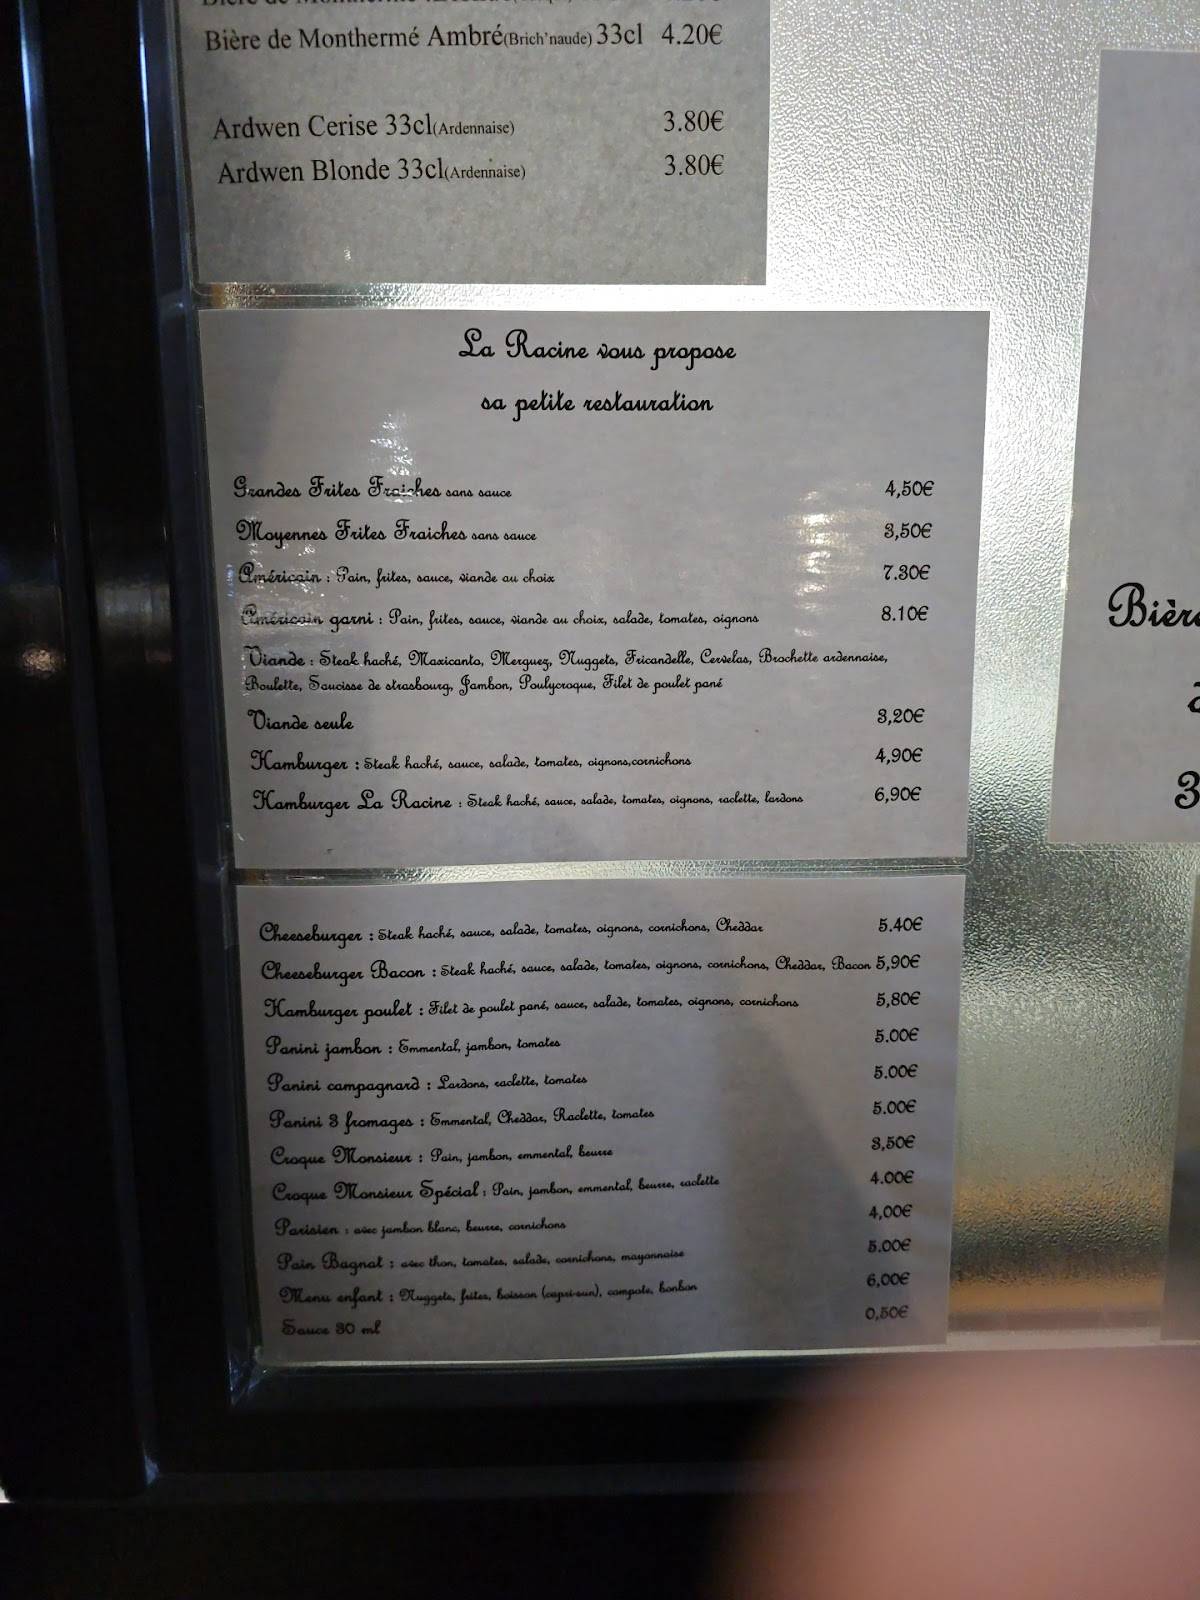 Bière de Monthermé Ambré(Brich'naude) 33cl 4.20€
Ardwen Cerise 33cl(Ardennaise) 3.80€
Ardwen Blonde 33cl(Ardennaise) 3.80€
La Racine vous propose
sa petite restauration
Grandes Frites Fraiches sans sauce 4,50€
Moyennes Frites Fraiches sans sauce 3,50€
Américain : Pain, frites, sauce, viande au choix 7.30€
Américain garni : Pain, frites, sauce, viande au choix, salade, tomates, oignons 8.10€
Viande : Steak haché, Maxicanto, Merguez, Nuggets, Fricandelle, Cervelas, Brochette ardennaise,
Boulette, Saucisse de strasbourg, Jambon, Poulycroque, Filet de poulet pané
Viande seule 3,20€
Hamburger : Steak haché, sauce, salade, tomates, oignons,cornichons 4,90€
Hamburger La Racine : Steak haché, sauce, salade, tomates, oignons, raclette, lardons 6,90€
Cheeseburger : Steak haché, sauce, salade, tomates, oignons, cornichons, Cheddar 5.40€
Cheeseburger Bacon : Steak haché, sauce, salade, tomates, oignons, cornichons, Cheddar, Bacon 5,90€
Hamburger poulet : Filet de poulet pané, sauce, salade, tomates, oignons, cornichons 5,80€
Panini jambon : Emmental, jambon, tomates 5.00€
Panini campagnard : Lardons, raclette, tomates 5.00€
Panini 3 fromages : Emmental, Cheddar, Raclette, tomates 5.00€
Croque Monsieur : Pain, jambon, emmental, beurre 3,50€
Croque Monsieur Spécial : Pain, jambon, emmental, beurre, raclette 4.00€
Parisien : avec jambon blanc, beurre, cornichons 4,00€
Pain Bagnat : avec thon, tomates, salade, cornichons, mayonnaise 5.00€
Menu enfant : Nuggets, frites, boisson (capri-sun), compote, bonbon 6,00€
Sauce 30 ml 0,50€